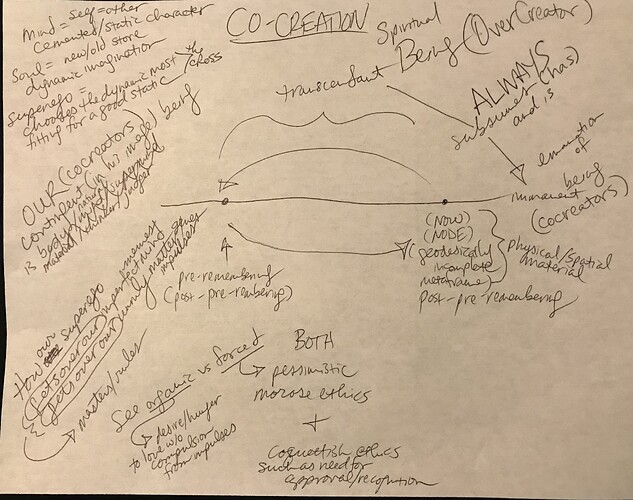 mind = self = other
cemented/static character
Soul = new/old store
dynamic imagination
superego =
chooses the dynamic most
fitting for a good static
the cross
CO-CREATION
Spiritual
Being (OverCreator)
transcendant
ALWAYS
subsumes (has)
and is
emanation
of
being
immanent
(cocreators)
OUR (cocreators)
contingent (in his mode) being
is body/mind/superego
material
(NOW)
(NODE)
(geodesically
incomplete
metaframe)
post-pre-remembering
physical/spatial
material
pre-remembering
(post-pre-rembering)
How our superego
gets over our
& gets over our matter
impulses
master/rules
See organic vs forced
desire/hunger
to love w/o
compulsion
from impulses
BOTH
pessimistic
morose ethics
+
coquettish ethics
such as need for
approval/recognition